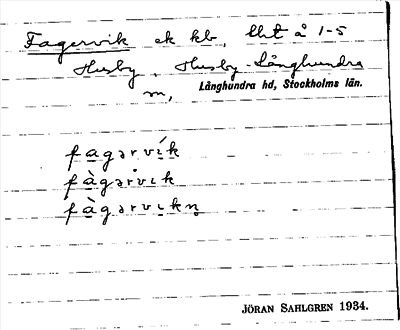 Fagervik ek kb, tlht å 1-5
Husby, Husby-Långhundra
m,
Långhundra hd, Stockholms län.
fa̲gərví̲k
fà̲gərvik
fà̲gərvi̲kn̥
JÖRAN SAHLGREN 1934.